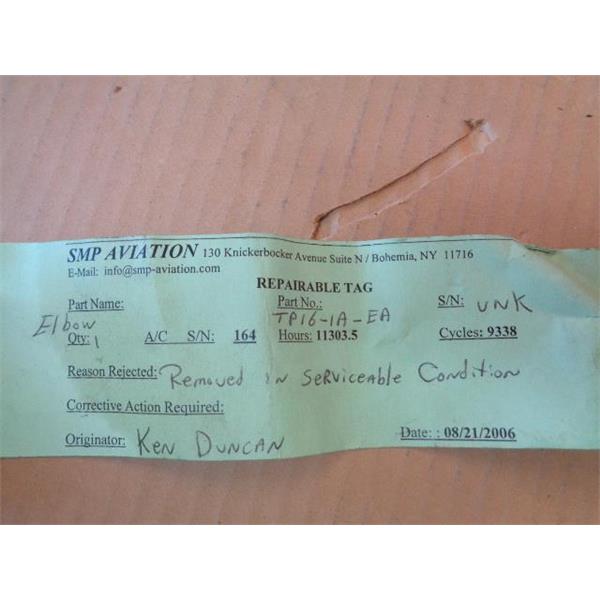 SMP AVIATION 130 Knickerbocker Avenue Suite N / Bohemia, NY 11716
E-Mail: info@smp-aviation.com
REPAIRABLE TAG
Part Name: Elbow Part No.: TP16-1A-EA S/N: UNK
Qty: 1 A/C S/N: 164 Hours: 11303.5 Cycles: 9338
Reason Rejected: Removed in Serviceable Condition
Corrective Action Required:
Originator: Ken Duncan Date: : 08/21/2006